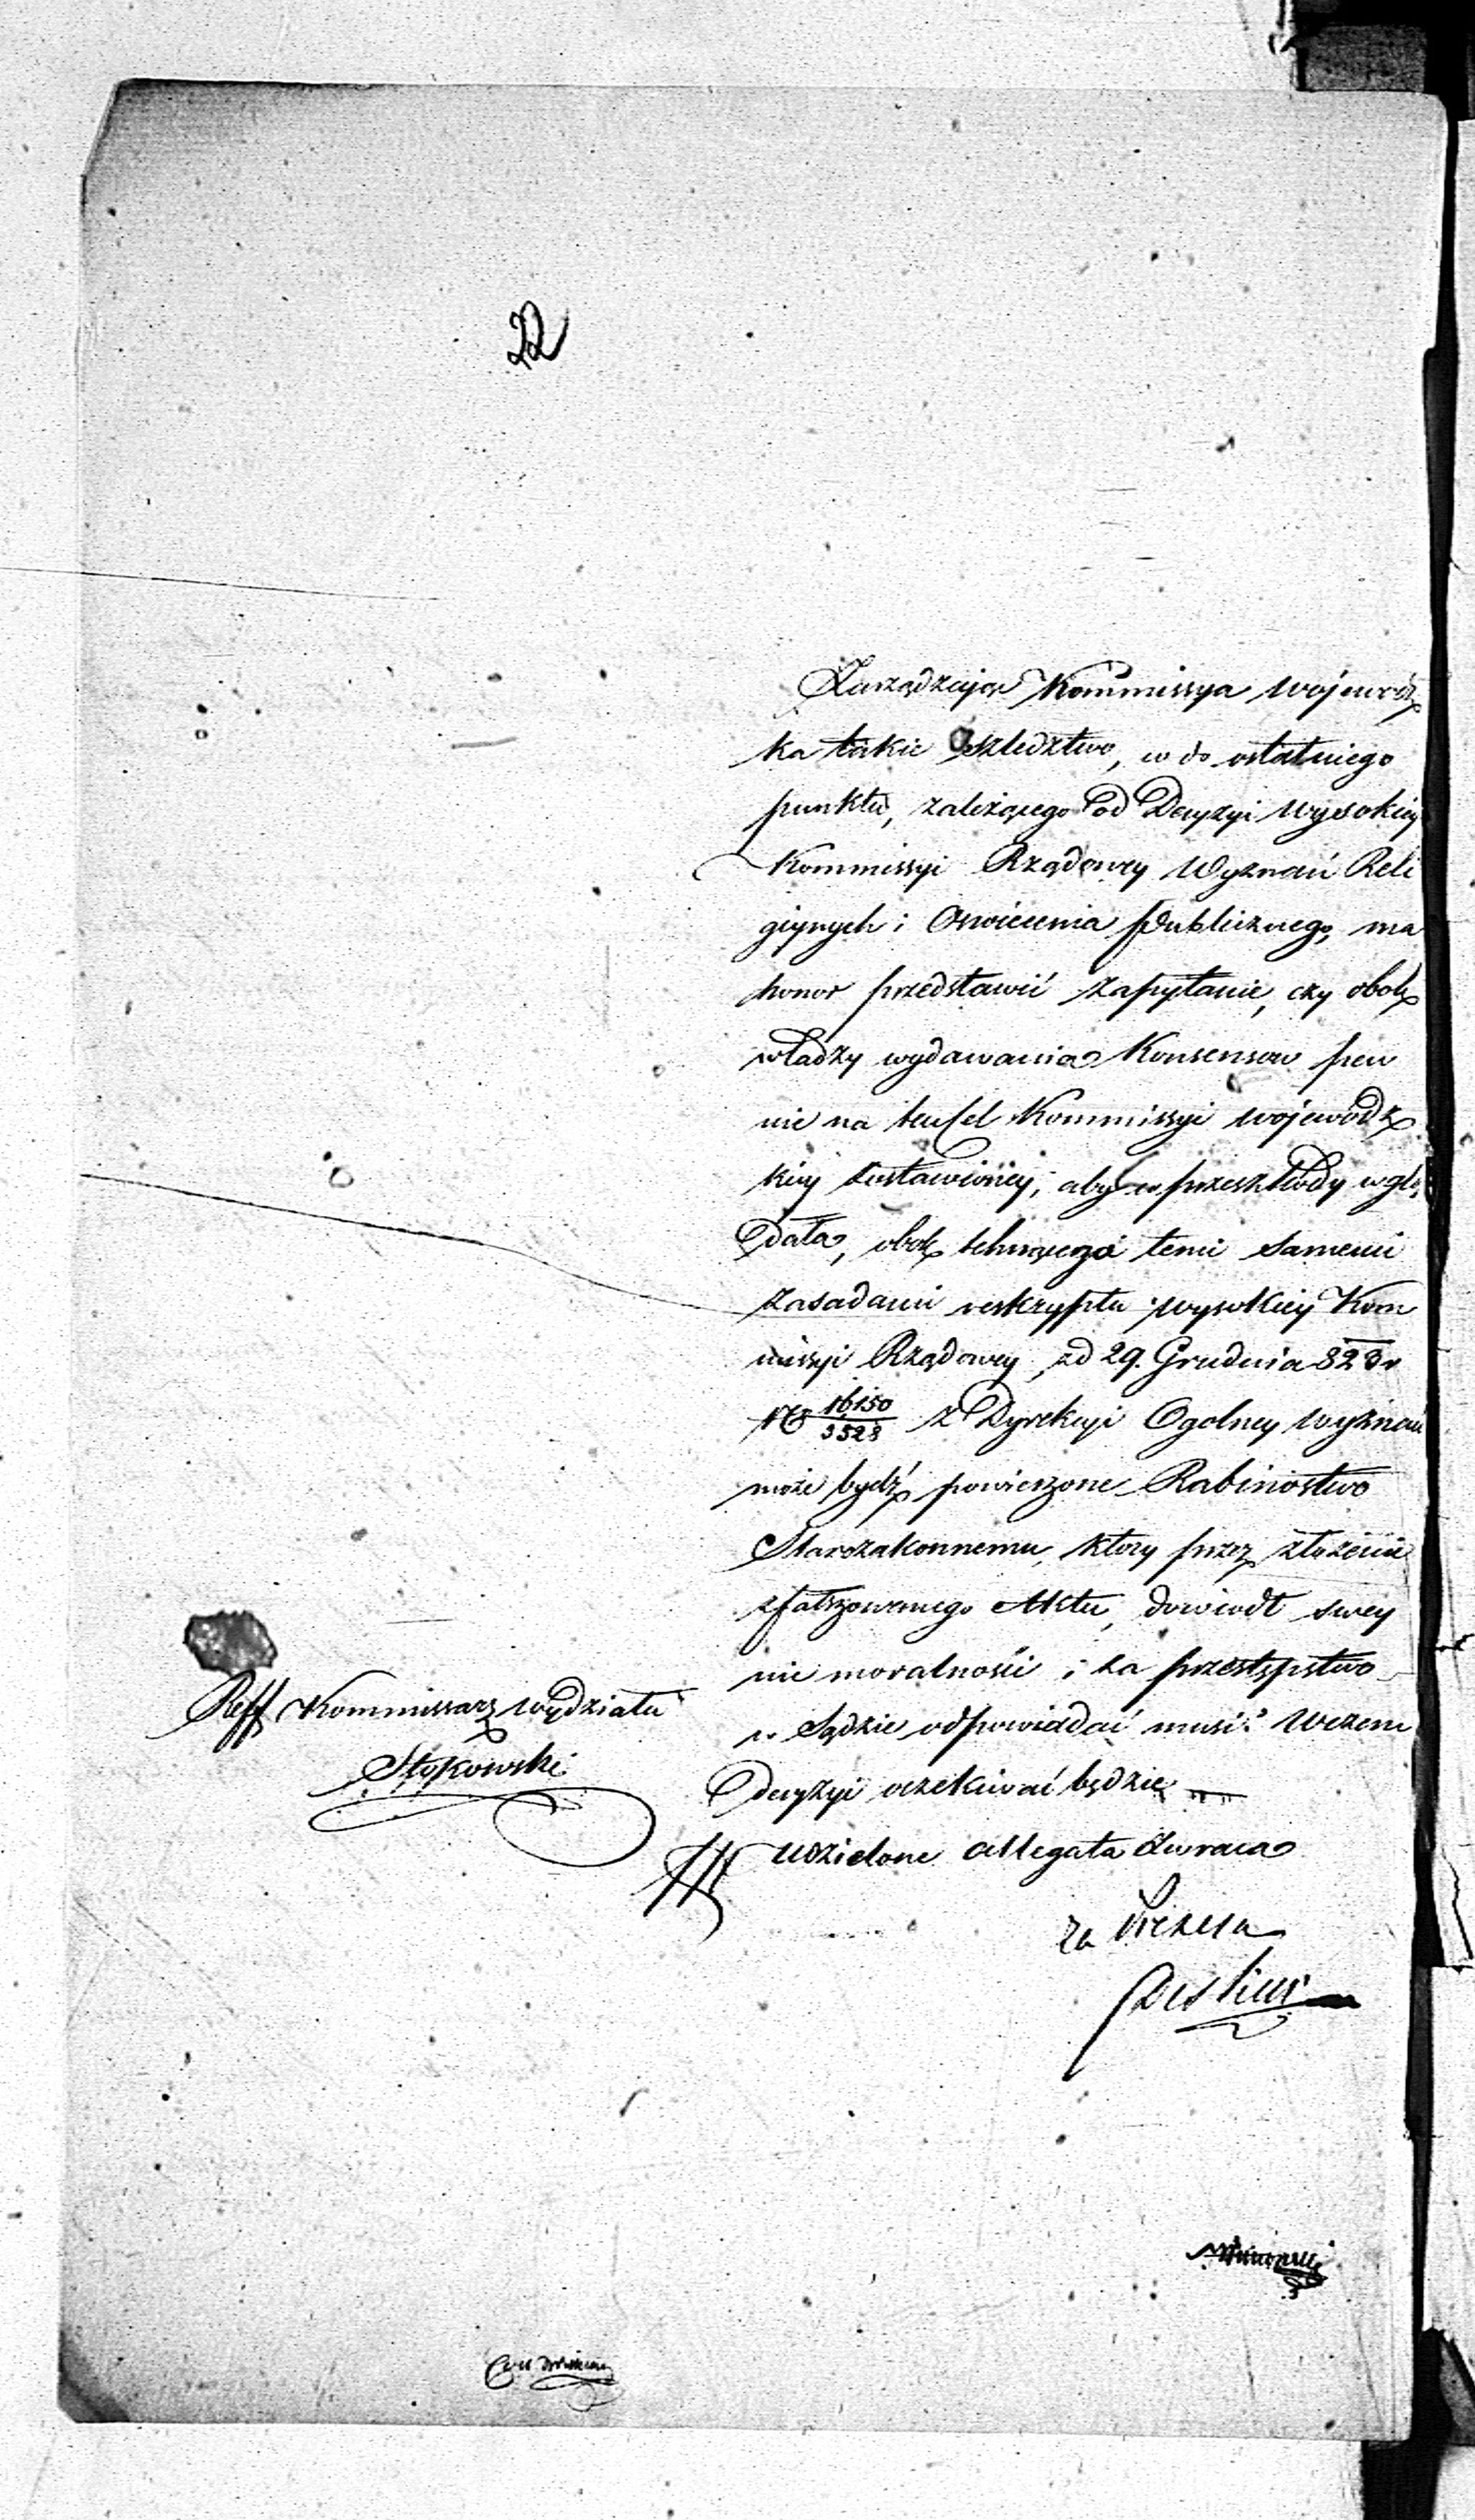 22
Zarządzając Kommissya Wojewódz
ka takie szledztwo, co do ostatniego
punktu, zależącego od Decyzyi Wysokiey
Kommissyi Rządowey Wyznań Reli
giynych i Oswiecenia Publicznego, ma
honor przedstawić zapytanie, czy obok
władzy wydawania Konsensow pew
nie na ten cel Kommissyi Wojewódz
kiey zostawioney, aby w przeszkody wglą
dała, obok tchnącego temi samemi
zasadami reskryptu Wysokiey Kom
missyi Rządowey zd 29. Grudnia 823 r
No 16150/3528 z Dyrekcyi Ogolney Wyznań
może bydź powierzone Rabinostwo
Starozakonnemu, ktory przez złożenie
zfałszowanego Aktu, dowiodł swey
nie moralności i za przestępstwo
w Sądzie odpowiadać musi? Wczem
Decyzyi oczekiwać będzie
Udzielone Allegata zwraca
Reff Kommissarz Wydziału
Za Prezesa